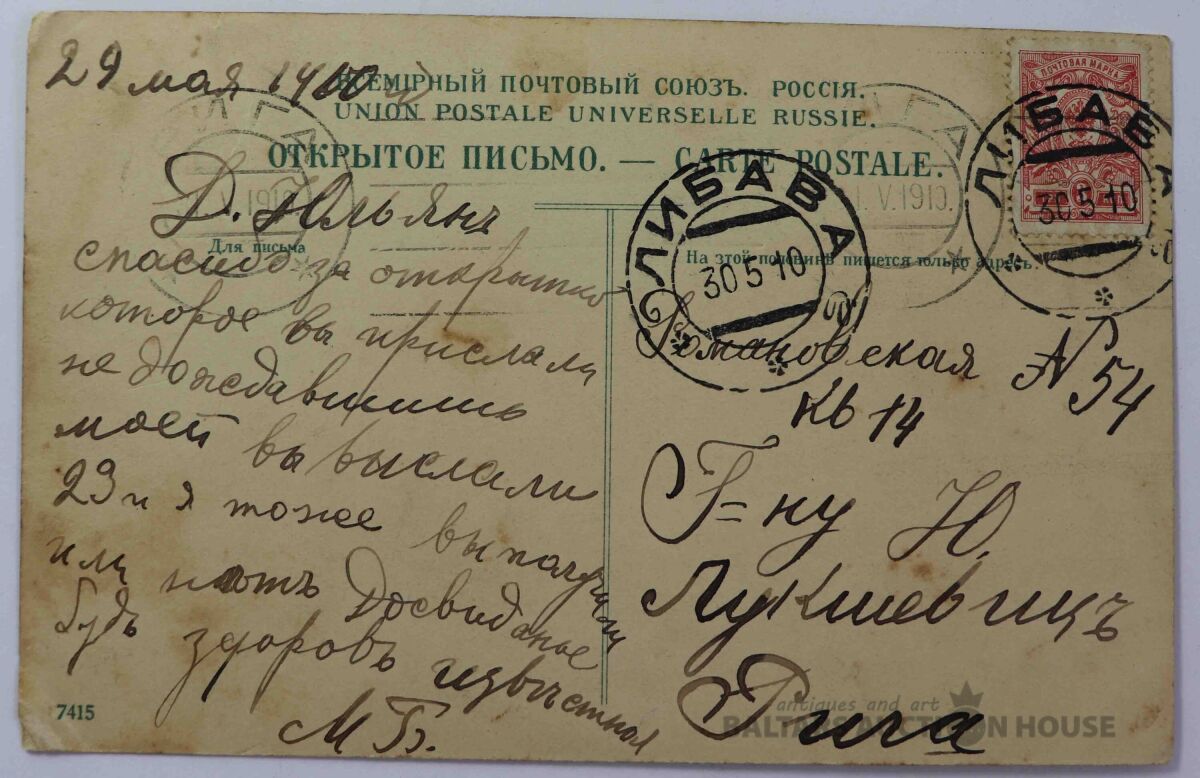 29 мая 1910
ВСЕМІРНЫЙ ПОЧТОВЫЙ СОЮЗЪ. РОССІЯ.
UNION POSTALE UNIVERSELLE RUSSIE.
ОТКРЫТОЕ ПИСЬМО. — CARTE POSTALE.
ПОЧТОВАЯ МАРКА
РИГА
V.1910.
ЛИБАВА
30 5 10
ЛИБАВА
30 5 10
Для письма
На этой половинѣ пишется только адресъ.
Д. Юльянъ
спасибо за открытко
которое вы прислали
не дождавшись
моей вы выслали
23 и я тоже выпо
или нотъ Досвиданье
Будь здоровъ извѣстная
М Б.
Романовская № 54
кв 14
Г=ну Ю.
Лукшевицъ
Рига
7415
antiques and art
BALTARS AUCTION HOUSE